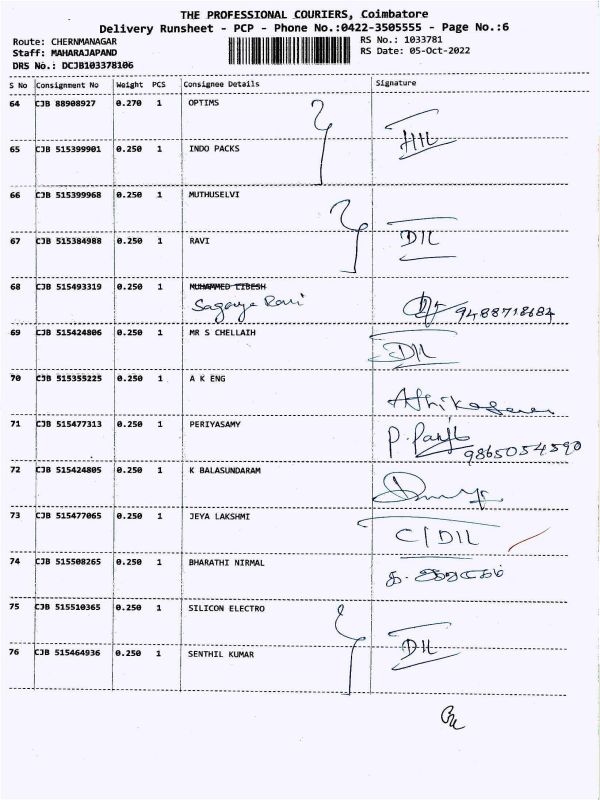 THE PROFESSIONAL COURIERS, Coimbatore
Delivery Runsheet - PCP - Phone No.:0422-3505555 - Page No.:6
Route: CHERNMANAGAR RS No.: 1033781
Staff: MAHARAJAPAND RS Date: 05-Oct-2022
DRS No.: DCJB103378106
S No Consignment No Weight PCS Consignee Details Signature
64 CJB 88908927 0.270 1 OPTIMS
65 CJB 515399901 0.250 1 INDO PACKS
66 CJB 515399968 0.250 1 MUTHUSELVI
67 CJB 515384988 0.250 1 RAVI D/L
68 CJB 515493319 0.250 1 MUHAMMED CIBESH
Sagaya Rani 9488718684
69 CJB 515424806 0.250 1 MR S CHELLAIH D/L
70 CJB 515355225 0.250 1 A K ENG
71 CJB 515477313 0.250 1 PERIYASAMY
9865054590
72 CJB 515424805 0.250 1 K BALASUNDARAM
73 CJB 515477065 0.250 1 JEYA LAKSHMI C/D/L
74 CJB 515508265 0.250 1 BHARATHI NIRMAL
75 CJB 515510365 0.250 1 SILICON ELECTRO
76 CJB 515464936 0.250 1 SENTHIL KUMAR D/L